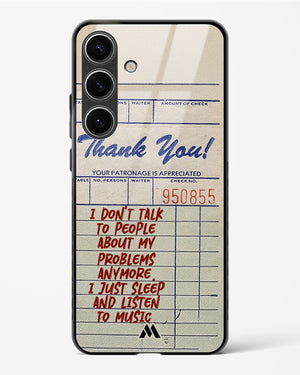 PERSONS WAITER AMOUNT OF CHECK
Thank You!
YOUR PATRONAGE IS APPRECIATED
ABLE NO. PERSONS WAITER CHECK NO.
950855
I DON'T TALK
TO PEOPLE
ABOUT MY
PROBLEMS
ANYMORE.
I JUST SLEEP
AND LISTEN
TO MUSIC